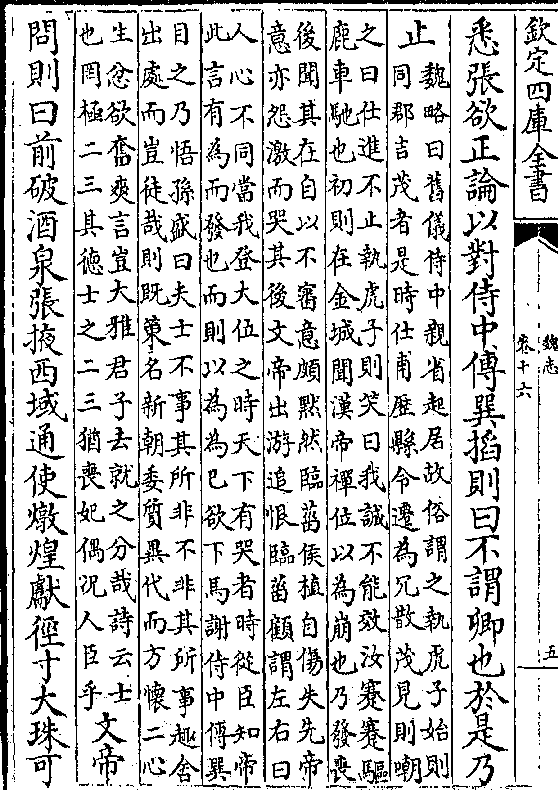 欽定四庫全書
魏志
卷十六
五
悉張欲正論以對侍中傳巽掐則曰不謂卿也於是乃
止
魏略曰舊儀侍中親省起居故俗謂之執虎子始則
同郡吉茂者是時仕甫歴縣令遷為冗散茂見則嘲
之曰仕進不止執虎子則笑曰我誠不能效汝蹇蹇驅
鹿車馳也初則在金城聞漢帝禪位以為崩也乃發喪
後聞其在自以不審意頗黙然臨菑侯植自傷失先帝
意亦怨激而哭其後文帝出游追恨臨菑顧謂左右曰
人心不同當我登大位之時天下有哭者時從臣知帝
此言有為而發也而則以為為已欲下馬謝侍中傳巽
目之乃悟孫盛曰夫士不事其所非不非其所事趣舍
出處而豈徒哉則既策名新朝委質異代而方懷二心
生忿欲奮爽言豈大雅君子去就之分哉詩云士
也罔極二三其德士之二三猶喪妃偶况人臣乎
文帝
問則曰前破酒泉張掖西域通使燉煌獻徑寸大珠可